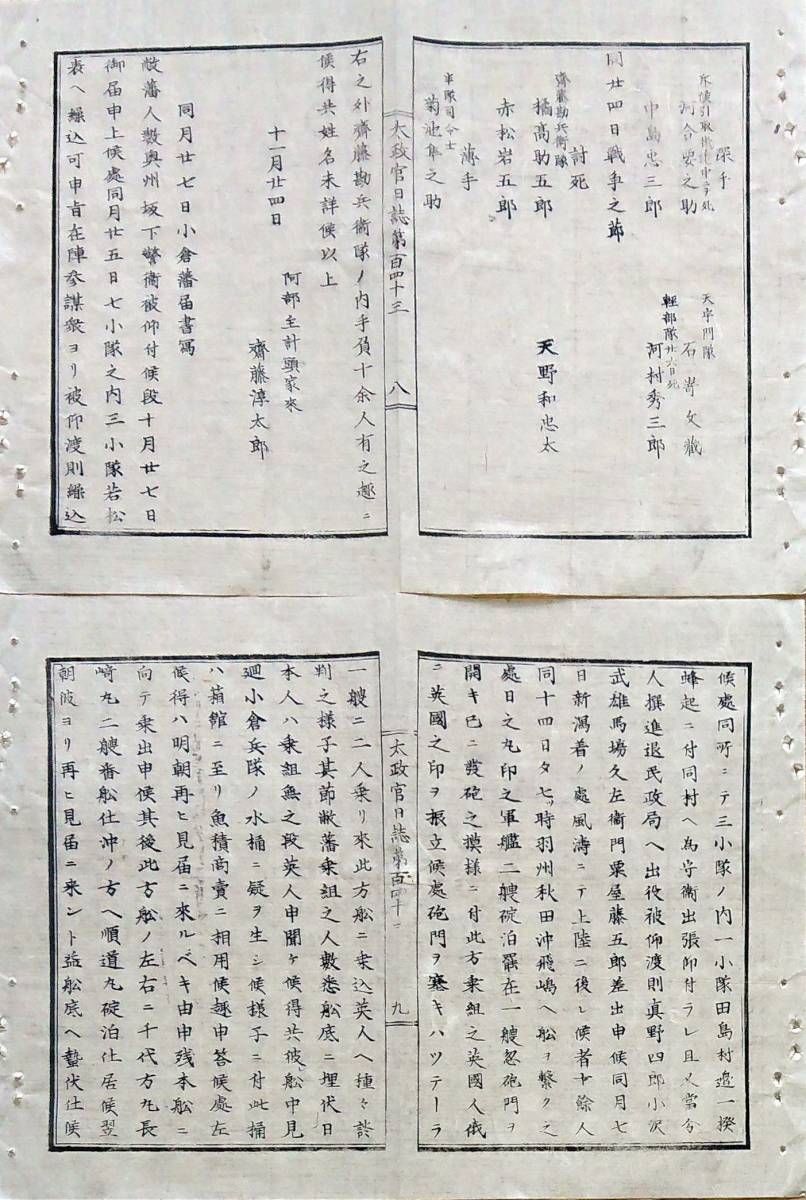 深手
斥候引取掛途中ニテ死
河合要之助
天字門隊
石嵜文蔵
中島忠三郎
軽部隊廿六日死
河村秀三郎
同廿四日戦争之節
討死
齋藤勘兵衛隊
橘高助五郎
天野和忠太
赤松岩五郎
薄手
半隊司令士
菊池隼之助
太政官日誌第百四十三
八
右之外齊藤勘兵衛隊ノ内手負十余人有之趣ニ
候得共姓名未詳候以上
十一月廿四日
阿部主計頭家來
齋藤淳太郎
同月廿七日小倉藩届書冩
敝藩人數奥州坂下警衛被仰付候段十月廿七日
御届申上候處同月廿五日七小隊之内三小隊若松
表ヘ繰込可申旨在陣参謀衆ヨリ被仰渡則繰込
候處同所ニテ三小隊ノ内一小隊田島村邊一揆
蜂起ニ付同村ヘ為守衛出張仰付ラレ且又當分
人撰進退民政局ヘ出役被仰渡則真野四郎小沢
武雄馬場久左衛門粟屋藤五郎差出申候同月七
日新潟着ノ處風濤ニテ上陸ニ後レ候者廿餘人
同十四日夕七ッ時羽州秋田沖飛嶋ヘ船ヲ繋ク之
處日之丸印之軍艦二艘碇泊罷在一艘忽砲門ヲ
開キ已ニ發砲之摸様ニ付此方乗組之英國人俄
ニ英國之印ヲ振立候處砲門ヲ塞キハツテーラ
太政官日誌第百四十三
九
一艘ニ二人乗リ來此方船ニ乗込英人ヘ種々談
判之様子其節敝藩乗組之人數悉船底ニ埋伏日
本人ハ乗組無之段英人申聞ケ候得共彼船中見
廻小倉兵隊ノ水桶ニ疑ヲ生シ候様子ニ付此桶
ハ箱館ニ至リ魚積商賣ニ相用候趣申答候處左
候得ハ明朝再ヒ見届ニ來ルベキ由申残本船ニ
向テ乗出申候其後此方船ノ左右ニ千代方丸長
崎丸二艘番船仕沖ノ方ヘ順道丸碇泊仕居候翌
朝彼ヨリ再ヒ見届ニ来ント益船底ヘ蟄伏仕候